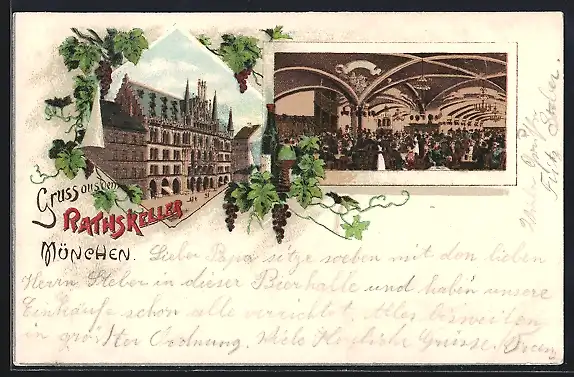 Gruss aus dem
RATHSKELLER
MÜNCHEN.
Lieber Papa sitze soeben mit den lieben
Herrn Steber in dieser Bierhalle und haben unsere
Einkäufe schon alle verrichtet. Alles bisweilen
in größter Ordnung. Viele Herzliche Grüsse